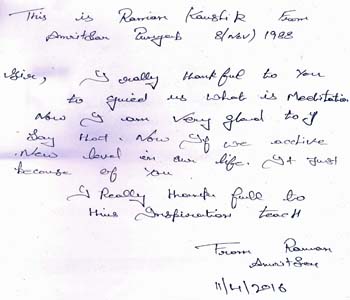 This is Raman Kaushik From
Amritsar Punjab 8(Nov) 1988
Sir, I really thankful to You
to guied us what is Meditation
Now I am very glad to
Say that. Now If we active
New level in our life. It Just
because of You
I Really thank full to
this Inspiration teach
From Raman
Amritsar
11/4/2016